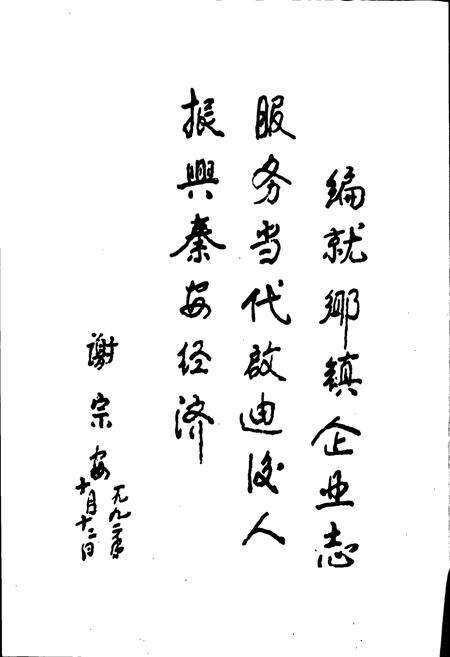 编就鄉镇企业志
服务当代啟迪後人
振興秦安经济
謝宗安
一九九二年
十月十二日